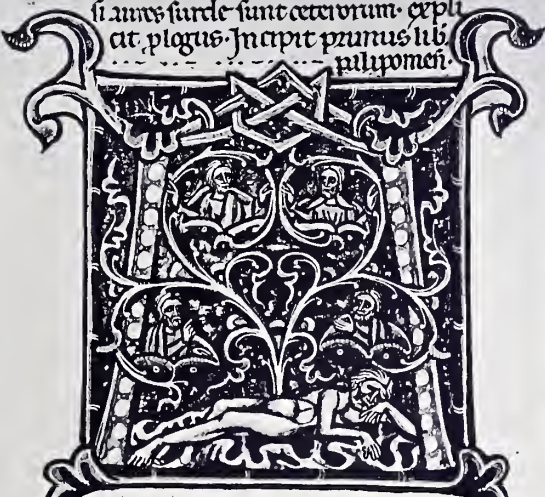 si aures surde sunt ceterorum. expli
cit .plogus. Incipit primus lib
pilipomen.